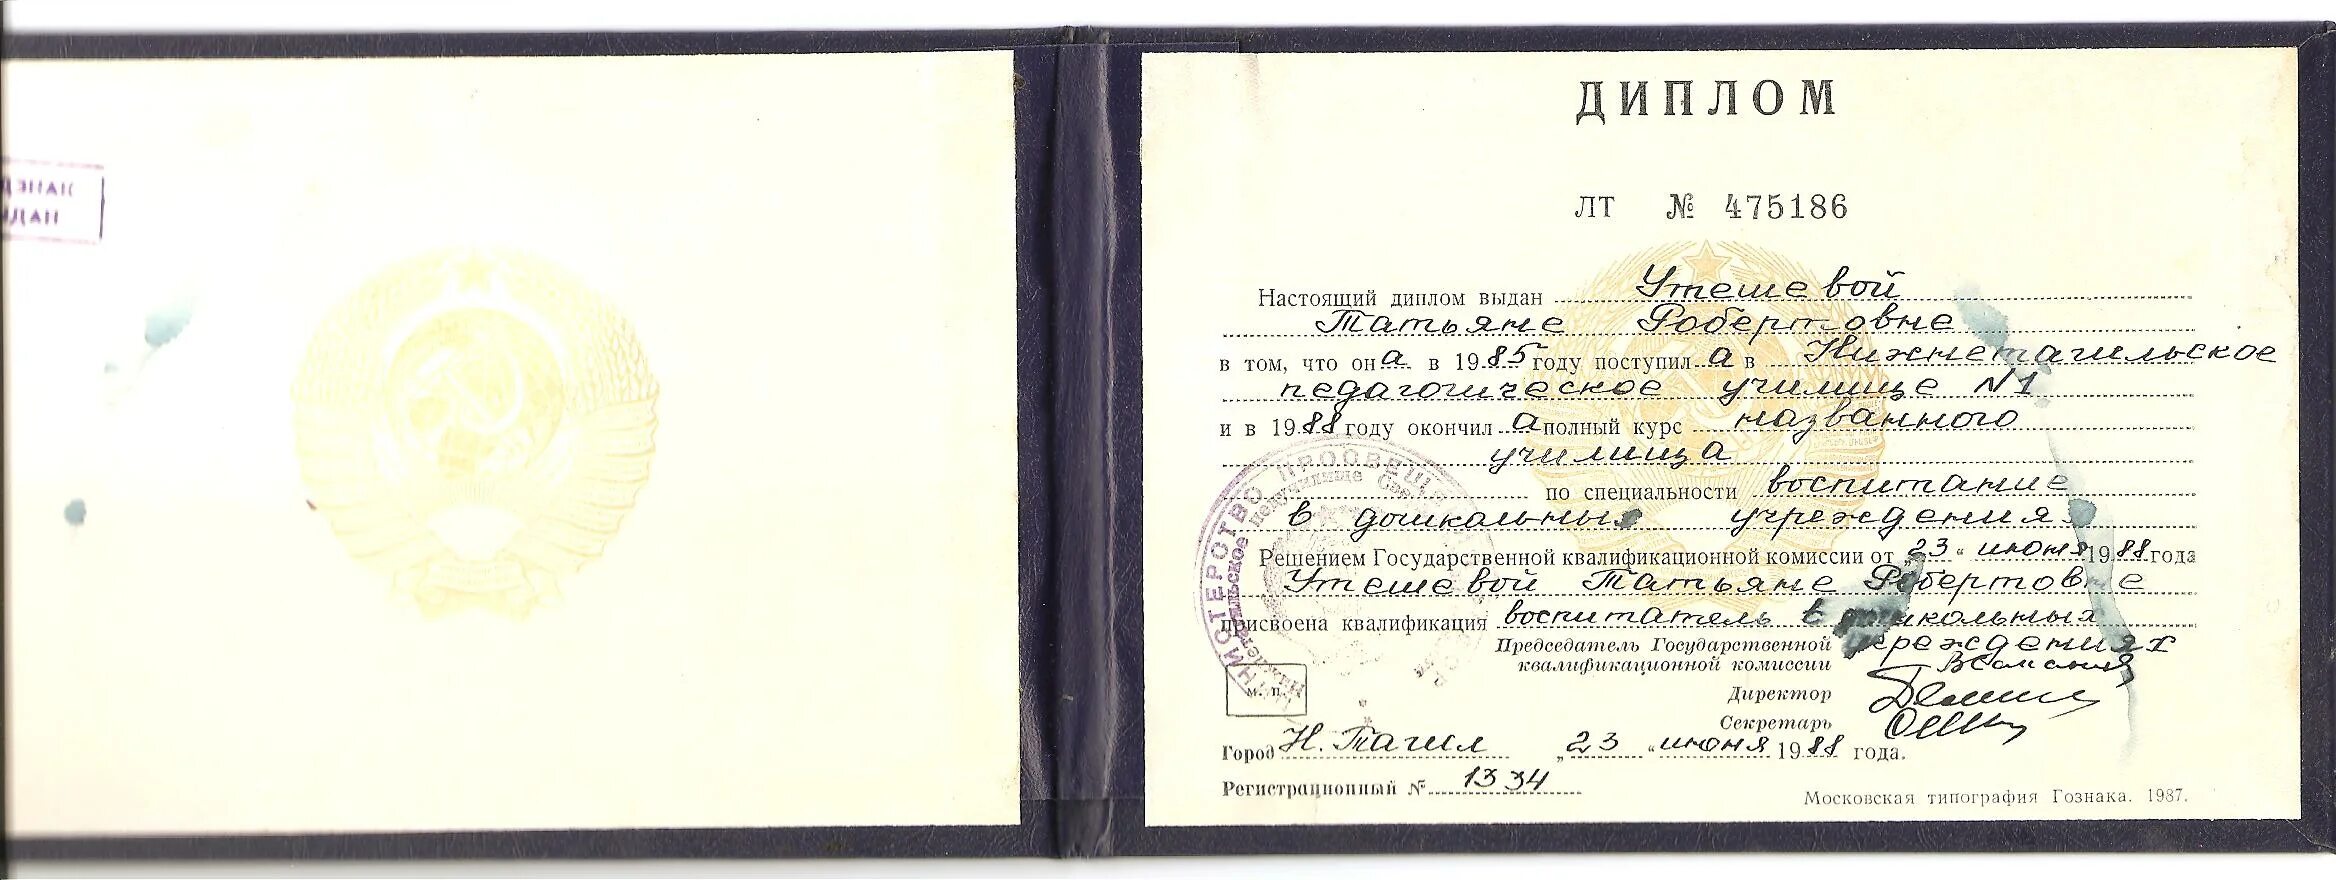 ДЗНАК
ЫДАН
ДИПЛОМ
ЛТ № 475186
Настоящий диплом выдан Утешевой
Татьяне Робертовне
в том, что она в 1985 году поступила в Нижнетагильское
педагогическое училище N1
и в 1988 году окончила полный курс названного
училища
по специальности воспитание
в дошкольных учреждениях
Решением Государственной квалификационной комиссии от „23“ июня 1988 года
Утешевой Татьяне Робертовне
присвоена квалификация воспитатель в дошкольных
учреждениях
Председатель Государственной
квалификационной комиссии
Директор
Секретарь
М. П.
Город Н. Тагил „23“ июня 1988 года.
Регистрационный № 1334
Московская типография Гознака. 1987.
МИНИСТЕРСТВО ПРОСВЕЩ